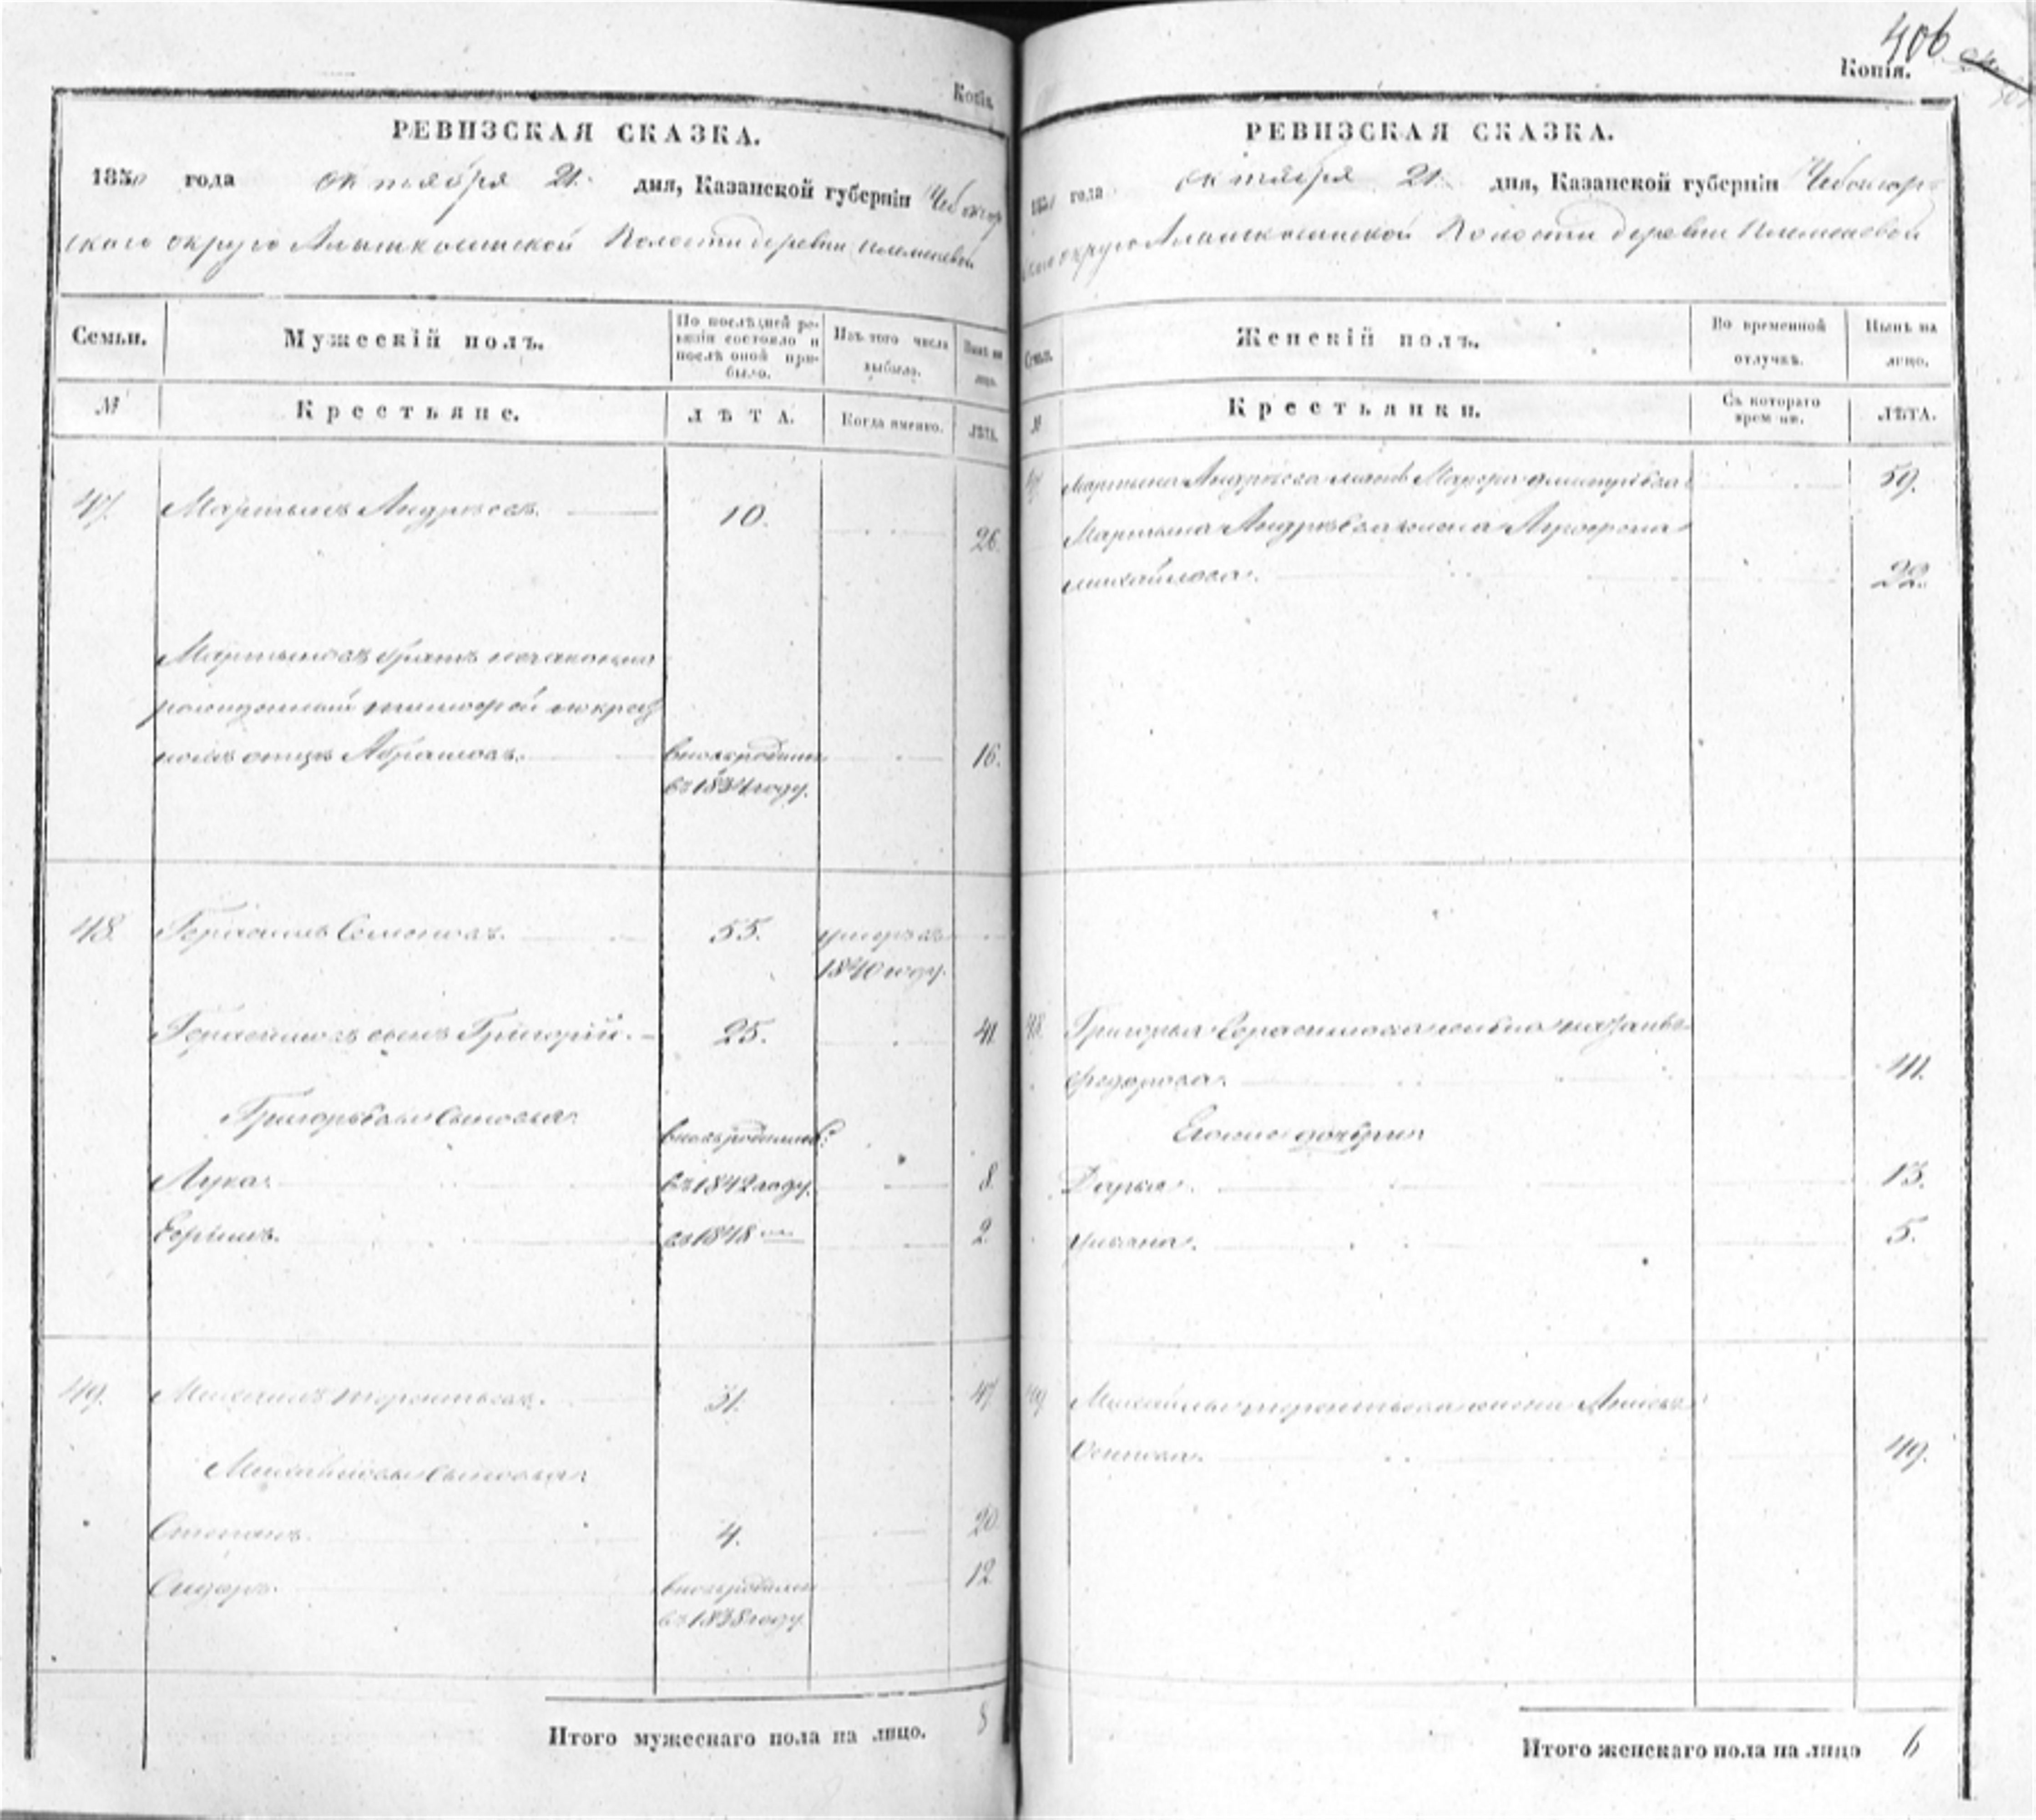 Копія.
РЕВИЗСКАЯ СКАЗКА.
1850 года октября 21. дня, Казанской губерніи Чебоксар
скаго округа Алымкасинской Волости деревни
Семьи. Мужескій полъ. По послѣдней ре- Изъ того числа Нынѣ на
визіи состояло и выбыло. лицо.
послѣ оной при-
было.
№ Крестьяне. ЛѢТА. Когда именно. ЛѢТА.
47. Мартынъ Андрѣевъ. 10. 26.
Мартыновъ братъ незаконно
рожденный
отцѣ Абрамовъ. 16.
въ 1834 году.
48. Герасимъ Семеновъ. 55. умеръ въ
1840 году.
Герасимовъ сынъ Григорій. 25. 41.
Григорьевы сыновья:
Лука. въ 1842 году. 8.
Ефимъ. въ 1848 2.
49. Михаилъ Терентьевъ. 31. 47.
Михайловы сыновья:
Степанъ. 4. 20.
Сидоръ. 12.
въ 1838 году.
Итого мужескаго пола на лицо. 8
406
Копія.
РЕВИЗСКАЯ СКАЗКА.
1850 года октября 21. дня, Казанской губерніи Чебоксар-
скаго округа Алымкасинской Волости деревни
Семьи. Женскій полъ. Во временной Нынѣ на
отлучкѣ. лицо.
№ Крестьянки. Съ котораго ЛѢТА.
времени.
47. Мартына Андрѣева мать 59.
Мартына Андрѣева жена
Михайлова. 22.
48. Григорья Герасимова жена
Федорова. 41.
Егоже дочери:
Дарья. 13.
Ульяна. 5.
49. Михайлы Терентьева жена
Осипова. 49.
Итого женскаго пола на лицо 6